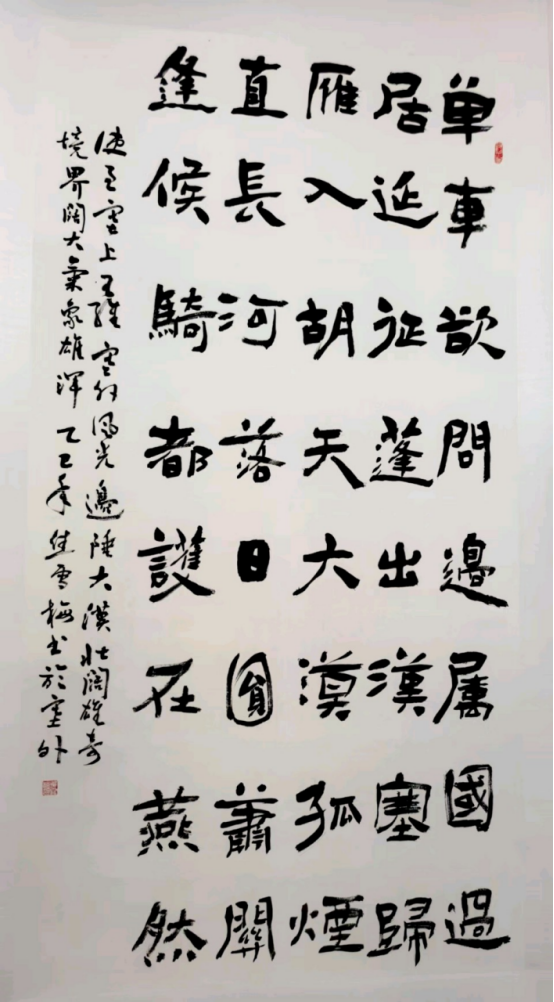 单車欲問邊属國過
居延征蓬出漢塞歸
雁入胡天大漠孤煙
直長河落日圓蕭關
逢候騎都護在燕然
使至塞上王維 塞外風光邊陲大漠壯闊雄奇
境界闊大氣象雄渾 乙巳年 雪梅书於塞外